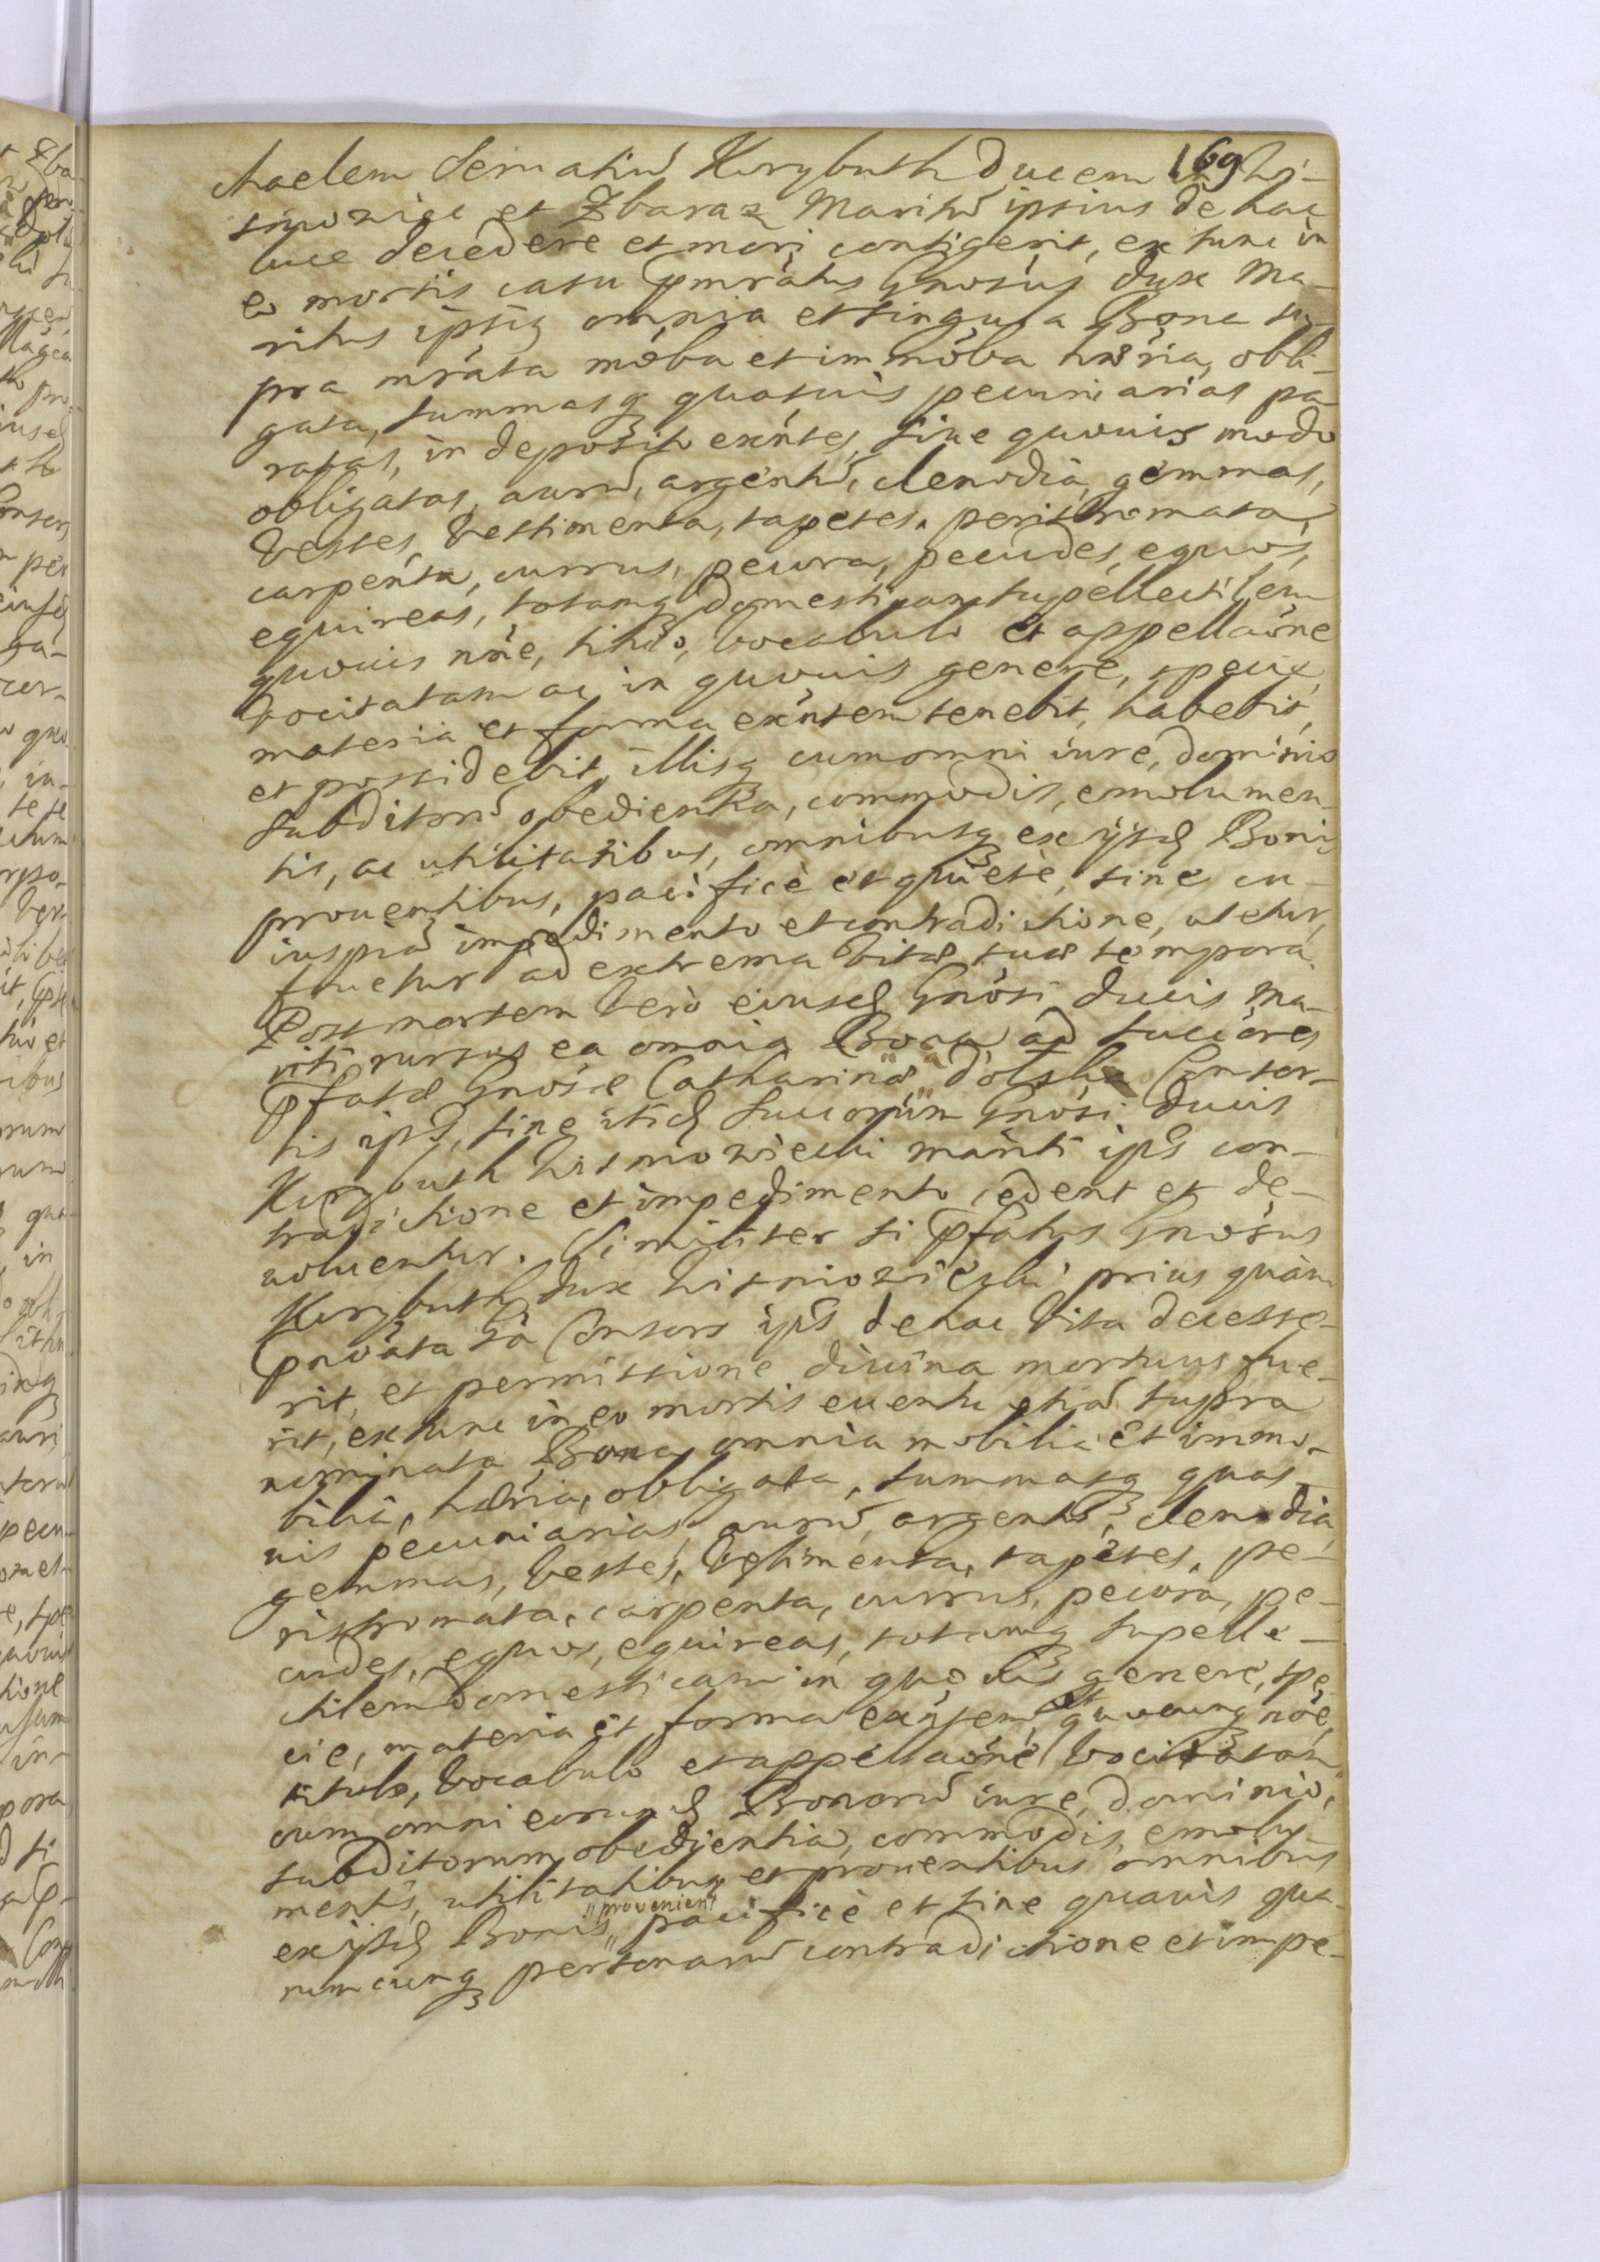 169
chaelem Seruatiũ Korybuth Ducem in Wi-
sniowiec et Zbaraz Maritũ ipsius de hac
luce decedere et mori contigerit, ex tunc in
eo mortis casu pmrátus Gnosus Dux Ma-
ritus ipsiq omnia et singula Bona su-
pra mráta móba et immóba hæria, obli-
gata, summasq quasuis pecuniarias pa-
ratas, in deposito exñtes, siue quouis modo
obligatas, aurũ, argentũ, clenodia, gemmas,
vestes, vestimenta, tapetes, peristromata,
carpenta, currus, pecora, pecudes, equos,
equireas, totamq domesticam supellectilem
quouis nñe, titulo, vocabulo et appellaõne
vocitatam ac in quouis genere, specie,
materia et forma exñtem tenebit, habebit,
et possidebit, illisq cum omni iure, dominio
subditorũ obedientia, commodis, emolumen-
tis, ac utilitatibus, omnibusq ex ijsd Bonis
prouentibus, pacificè et quietè, sine cu-
iuspiã impedimento et contradictione, utetur,
fruetur ad extrema vitæ suæ tempora.
Post mortem verò eiusd Gnosi Ducis Ma-
riti rursus ea omnia Bona ad succores
Pfatæ Gnosæ Catharinæ Dolska Consor-
tis ips, sine itid succorum Gnosi Ducis
Korybuth Wisniowiecki mariti ips con-
tradictione et impedimento cedent et de-
uoluentur. Similiter si Pfatus Gnosus
Korybuth Dux Wisniowiecki prius quàm
Pnoáta sã Consors ips de hac vita decesse-
rit, et permissione diuina mortuus fue-
rit, ex tunc in eo mortis euentu etiã supra
nominata Bona omnia mobilia et immo-
bilia, hæria, obligata, summasq quas-
uis pecuniarias, aurũ, argentũ, clenodia,
gemmas, vestes, vestimenta, tapetes, pe-
ristromata, carpenta, currus, pecora, pe-
cudes, equos, equireas, totamq supelle-
ctilem domesticam in quouis genere, spe-
cie, materia et forma exñtem, et quocunq nõe,
titulo, vocabulo et appellaõne vocitatam
cum omni eorund Bonorũ iure, dominio,
subditorum obedientia, commodis, emolu-
mentis, utilitatibus et prouentibus omnibus
ex ijsd Bonis "prouenien" pacificè et sine quauis qua-
rumcunq personarũ contradictione et impe-